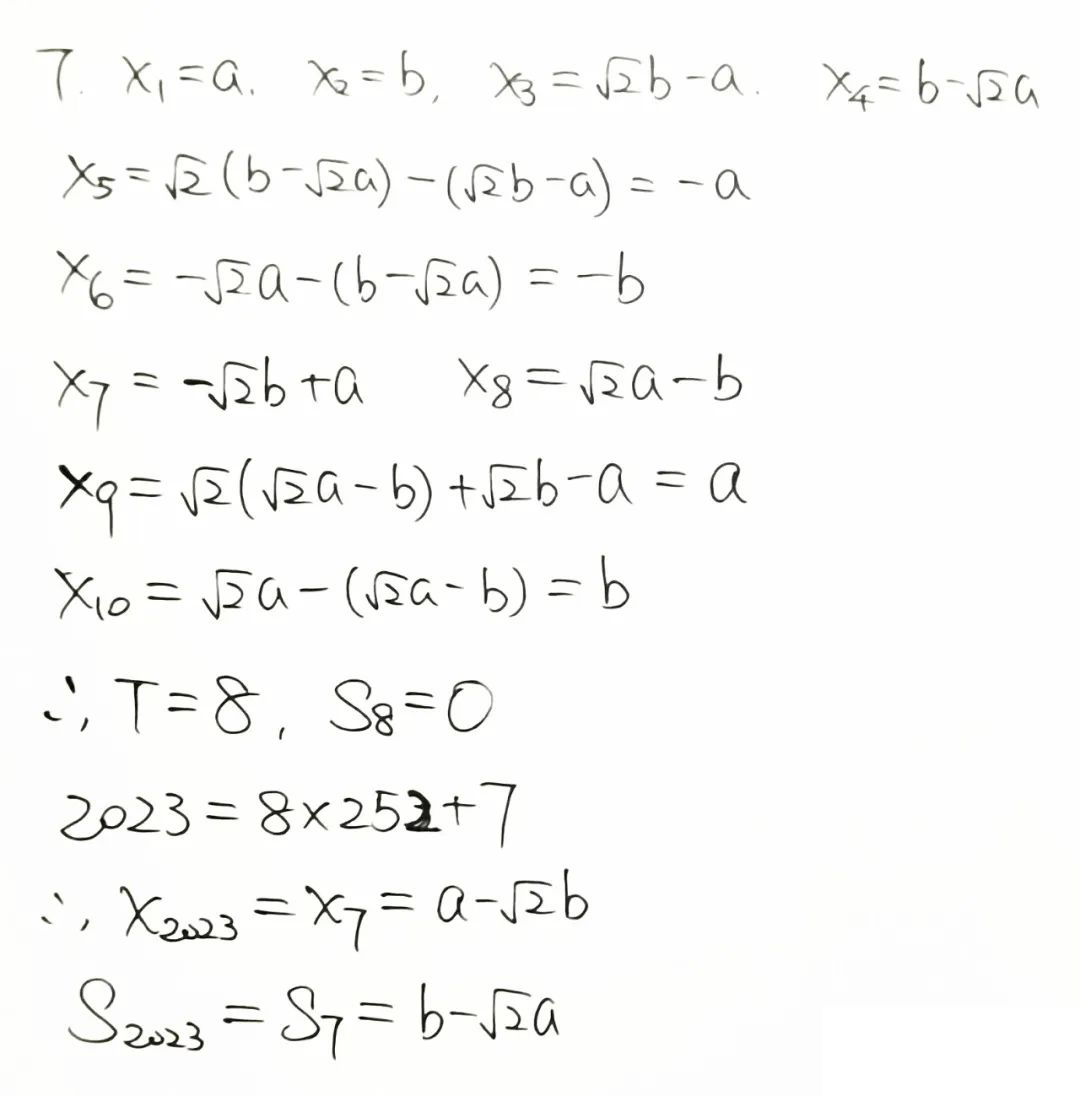 7. x₁=a, x₂=b, x₃=√2b-a. x₄=b-√2a
x₅=√2(b-√2a)-(√2b-a)=-a
x₆=-√2a-(b-√2a)=-b
x₇=-√2b+a x₈=√2a-b
x₉=√2(√2a-b)+√2b-a=a
x₁₀=√2a-(√2a-b)=b
∴, T=8, S₈=0
2023=8×252+7
∴, x₂₀₂₃=x₇=a-√2b
S₂₀₂₃=S₇=b-√2a